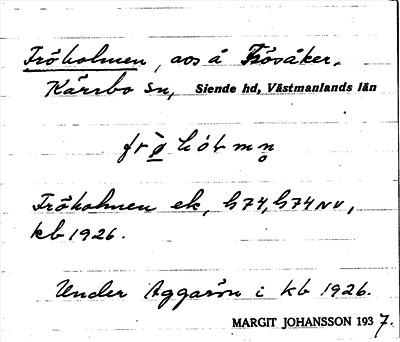 Fröholmen, avs å Frösåker,
Kärrbo sn, Siende hd, Västmanlands län
Fröholmen ek, h74, h74NV,
kb 1926.
Under Aggarön i kb 1926.
MARGIT JOHANSSON 1937.